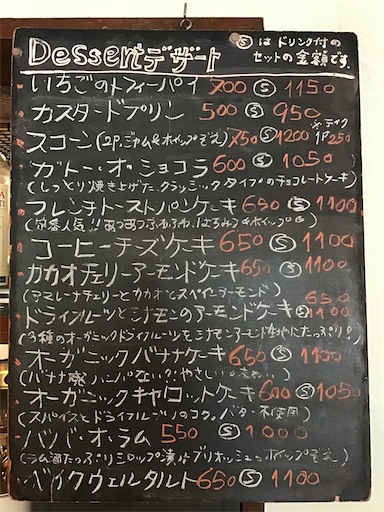 Dessert デザート
Ⓢは ドリンク付の
セットの金額です。
いちごのトフィーパイ 700 Ⓢ 1150
カスタードプリン 500 Ⓢ 950
スコーン(2P,ジャム&ホイップそえ) 750 Ⓢ 1200
※テイク
1P 250
ガトー・オ・ショコラ 600 Ⓢ 1050
(しっとり焼きあげたクラシックタイプのチョコレートケーキ)
フレンチトーストパンケーキ 650 Ⓢ 1100
コーヒーチーズケーキ 650 Ⓢ 1100
カカオチェリーアーモンドケーキ 650 Ⓢ 1100
(アマレーナチェリーとカカオとスペインアーモンド)
ドライフルーツとシナモンのアーモンドケーキ 650 Ⓢ 1100
(3種のオーガニックドライフルーツをシナモンアーモンド生地にたっぷり!)
オーガニックバナナケーキ 650 Ⓢ 1100
(バナナ感ハンパない?やさしい
オーガニックキャロットケーキ 600 Ⓢ 1050
(スパイスとドライフルーツのコク。バター不使用)
ババ・オ・ラム 550 Ⓢ 1000
(ラム酒たっぷりシロップ漬けブリオッシュ ホイップそえ)
ベイクウェルタルト 650 Ⓢ 1100